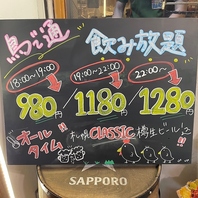 鳥で通 飲み放題
18:00〜19:00 19:00〜22:00 22:00〜
980円/1180円/1280円
オールタイム!! 札幌CLASSIC 樽生ビール!
SAPPORO